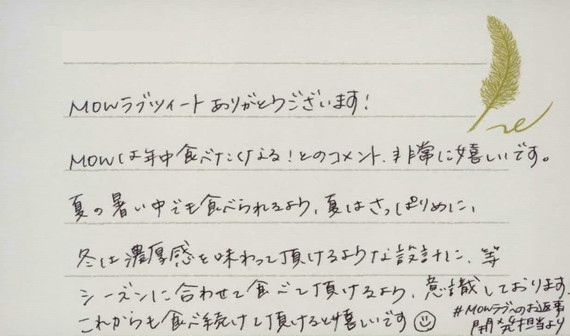 MOWラブツイートありがとうございます!
MOWは年中食べたくなる!とのコメント、非常に嬉しいです。
夏の暑い中でも食べられるよう、夏はさっぱりめに、
冬は濃厚感を味わって頂けるような設計に、等
シーズンに合わせて食べて頂けるよう、意識しております。
これからも食べ続けて頂けると嬉しいです☺
#MOWラブへのお返事
開発担当より